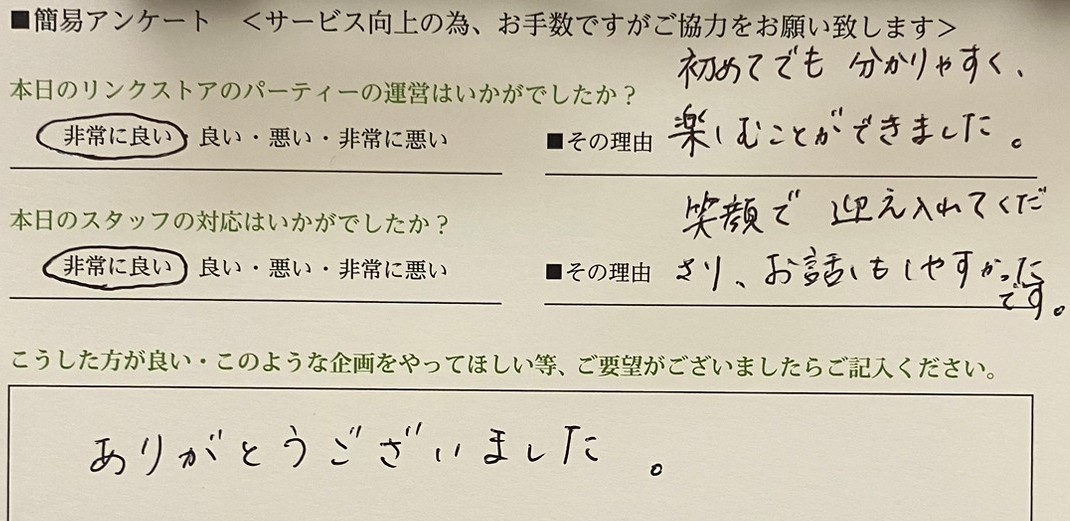 ■簡易アンケート　＜サービス向上の為、お手数ですがご協力をお願い致します＞
本日のリンクストアのパーティーの運営はいかがでしたか？
非常に良い・良い・悪い・非常に悪い
■その理由
初めてでも 分かりやすく、
楽しむことができました。
本日のスタッフの対応はいかがでしたか？
非常に良い・良い・悪い・非常に悪い
■その理由
笑顔で 迎え入れてくだ
さり、お話しもしやすかった
です。
こうした方が良い・このような企画をやってほしい等、ご要望がございましたらご記入ください。
ありがとうございました。